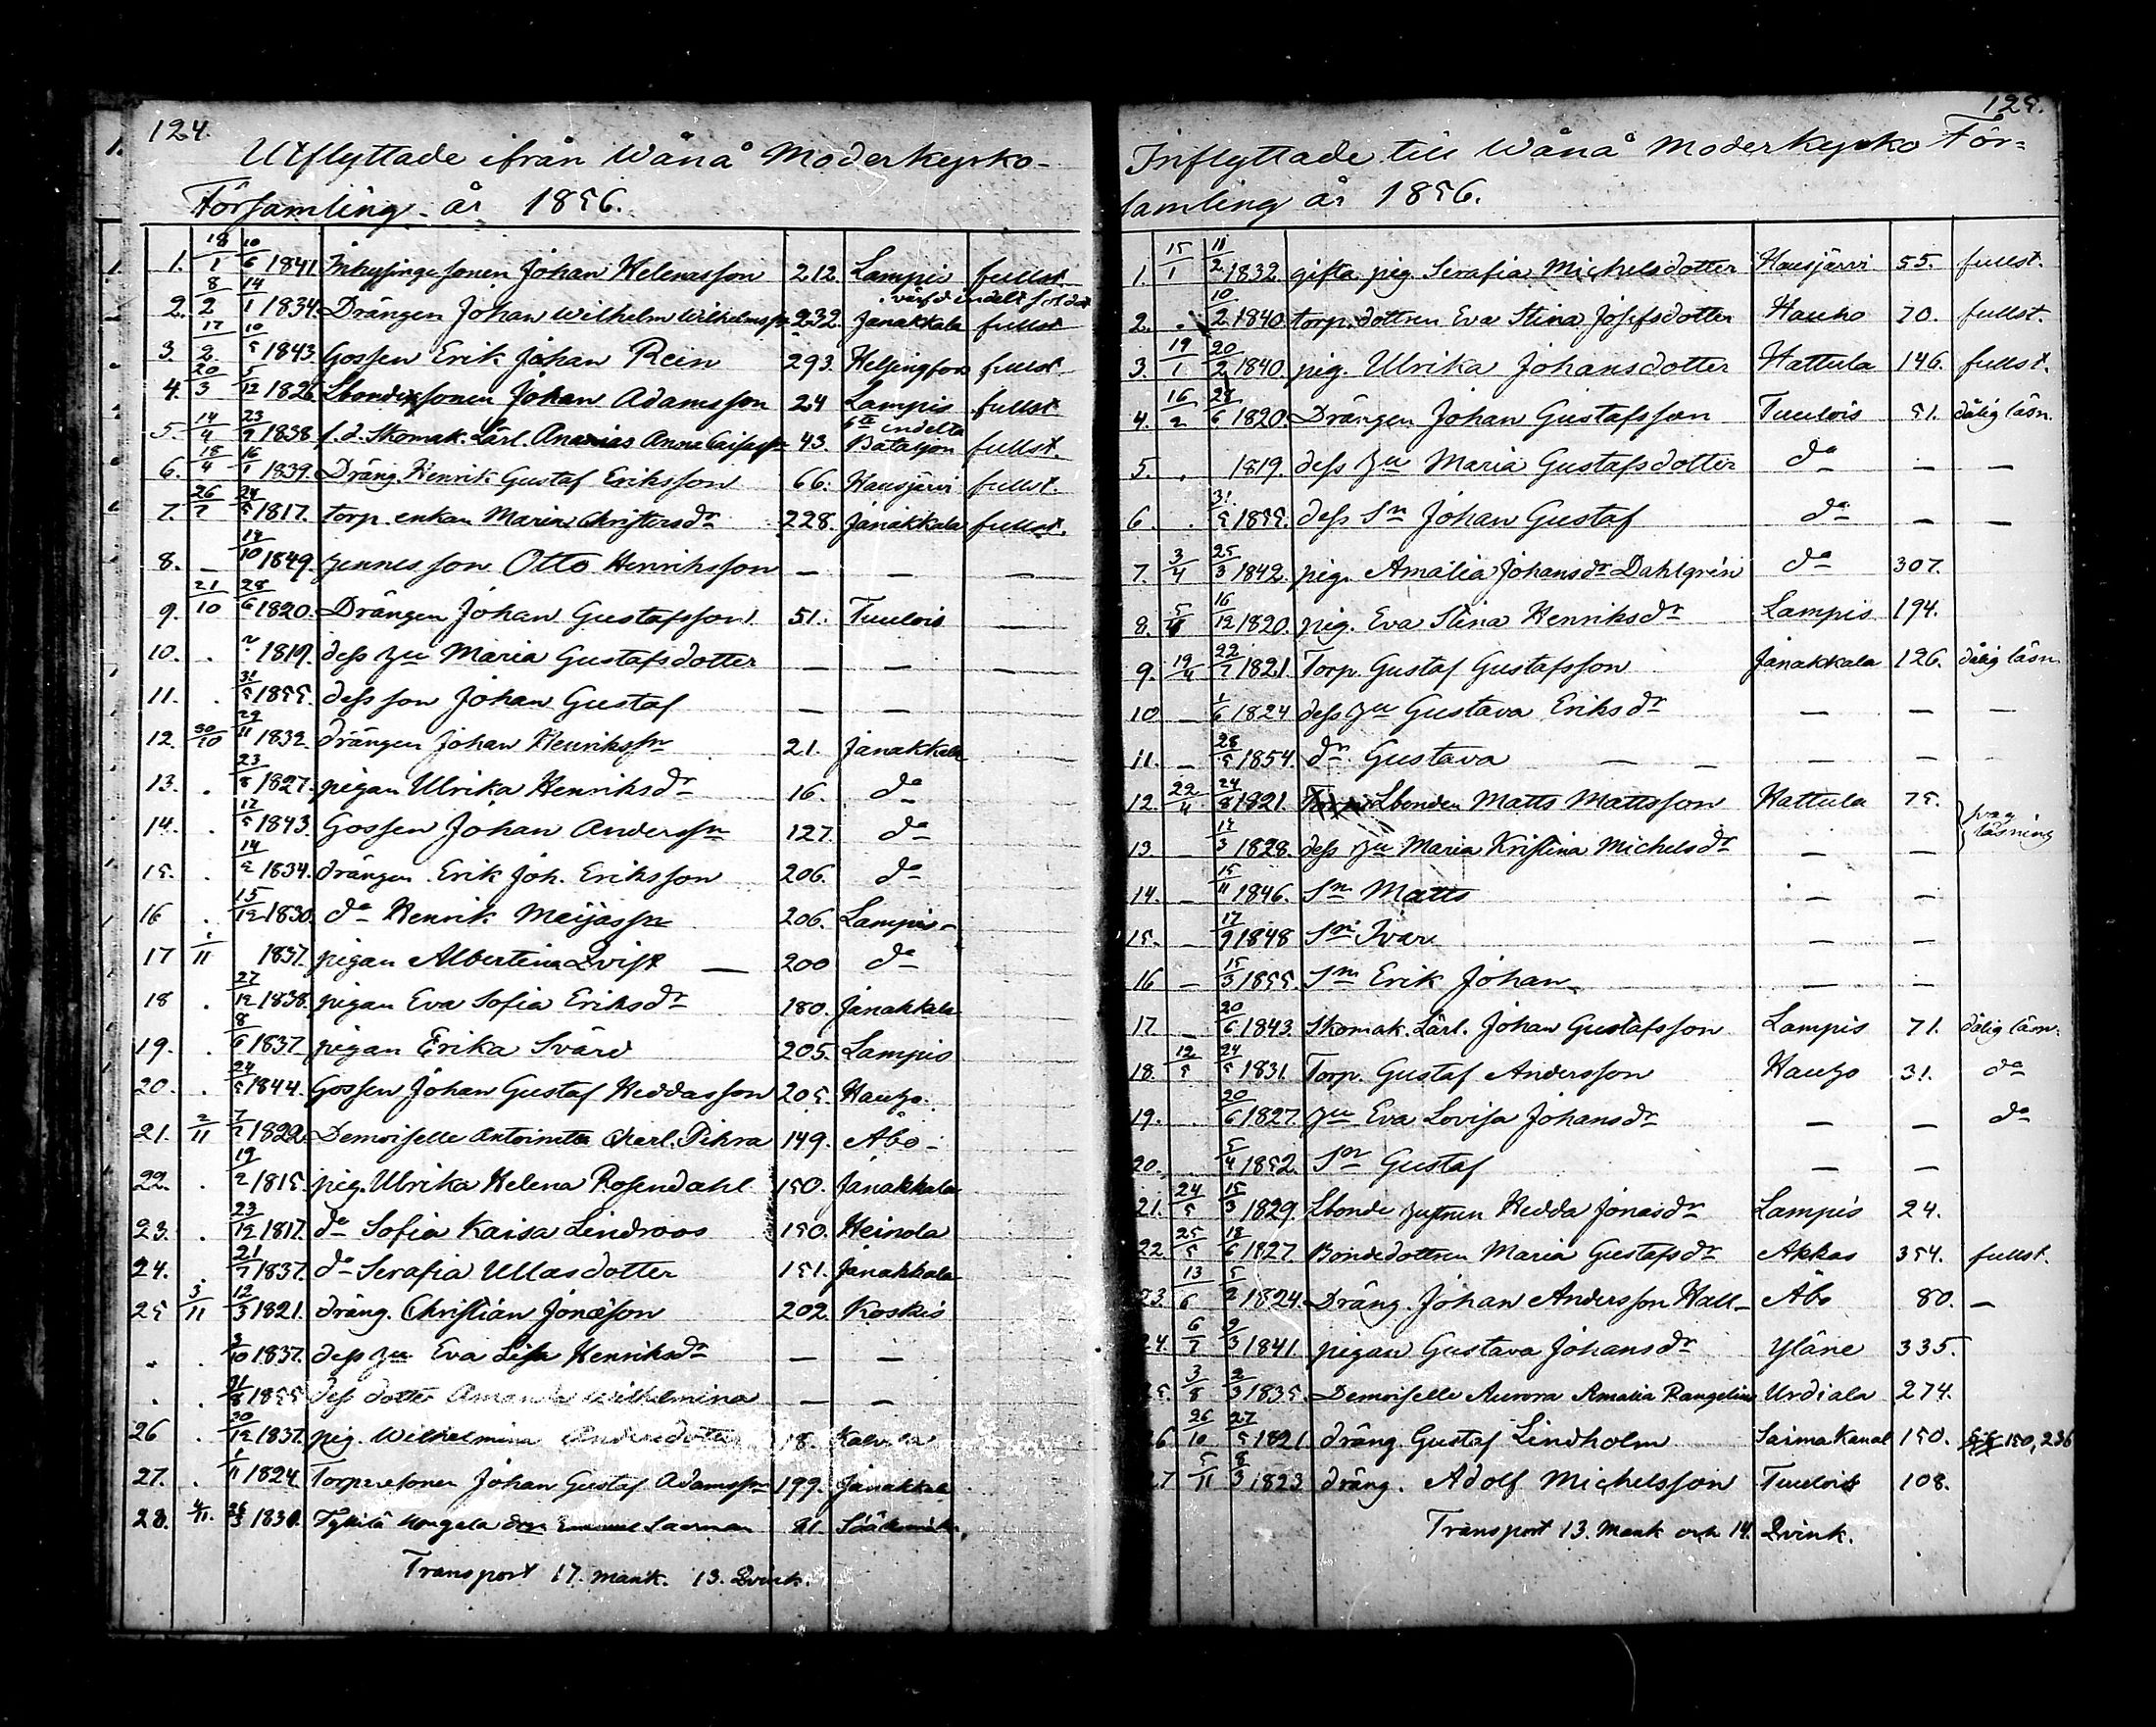 124.
Utflyttade ifrån Wånå Moderkyrko-
Församling år 1856.
1. 18/1 10/6 1841. Inhysinge sonen Johan Helenasson 212. Lampis fullst.
2. 8/2 14/1 1834. Drängen Johan Wilhelm Wilhelmss:n 232. värfd indelt soldat Janakkala fullst.
3. 17/2. 10/5 1843. Gossen Erik Johan Rein 293. Helsingfors fullst.
4. 20/3 5/12 1826. Lbondesonen Johan Adamsson 24 Lampis fullst.
5. 14/4 23/9 1838. f.d. Skomak. Lärl. Ananias Anna Caisass:n 43. indelta Bataljon fullst.
6. 18/4 16/1 1839. Dräng. Henrik Gustaf Eriksson 66. Hausjärvi fullst.
7. 26/7 24/5 1817. torp. enkan Maria Christersdr 228. Janakkala fullst.
8. – 14/10 1849. hennes son Otto Henriksson – – –
9. 21/10 28/6 1820. Drängen Johan Gustafsson 51. Tuulois –
10. . 1819. dess hu Maria Gustafsdotter – – –
11. . 31/5 1855. dess son Johan Gustaf – –
12. 30/10 29/11 1832. drängen Johan Henrikss:n 21. Janakkala
13. . 23/8 1827. pigan Ulrika Henriksdr 16. do
14. . 12/5 1843. Gossen Johan Anderss:n 127. do
15. . 14/2 1834. drängen Erik Joh. Eriksson 206. do
16 . 15/12 1830. do Henrik Meijass:n 206. Lampis –
17 1/11 1837. pigan Albertina Qvist – 200 do
18 . 27/12 1838. pigan Eva Sofia Eriksdr 180. Janakkala
19. . 8/6 1837. pigan Erika Svärd 205. Lampis
20. . 24/5 1844. Gossen Johan Gustaf Heddasson 205. Hauho.
21. 2/11 7/7 1822. Demoiselle Antoinetta Charl. Pihra 149. Åbo –
22. . 19/2 1815. pig. Ulrika Helena Rosendahl 150. Janakkala
23. . 23/12 1817. do Sofia Kaisa Lindroos 150. Heinola
24. . 21/7 1837. do Serafia Ullasdotter 151. Janakkala
25 3/11 12/3 1821. dräng. Christian Jonasson 202. Koskis
. . 3/10 1837. dess hu Eva Lisa Henriksdr – –
. . 31/8 1855 dess dotter Amanda Wilhelmina – –
26 . 30/12 1837. pig. Wilhelmina Andersdotter 18. Kalvola
27. . 1/11 1824. Torparesonen Johan Gustaf Adamss:n 199. Janakkala
28. 4/11. 26/3 1830. Emanuel Saxman 81. Sääksmäki.
Transport 17. mank. 13. Qvink.
125.
Inflyttade till Wånå Moderkyrko För=
samling år 1856.
1. 15/1 11/2 1832. gifta pig. Serafia Michelsdotter Hausjärvi 55. fullst.
2. . 10/2 1840. torp. dottren Eva Stina Josefsdotter Hauho 70. fullst.
3. 19/1 20/2 1840. pig. Ulrika Johansdotter Hattula 146. fullst.
4. 16/2 28/6 1820. Drängen Johan Gustafsson Tuulois 51. dålig läsn.
5. . 1819. dess hu Maria Gustafsdotter do – –
6. . 31/5 1855. dess Sn Johan Gustaf do – –
7. 3/4 25/3 1842. pig. Amalia Johansdr Dahlgrén do 307.
8. 5/4 16/12 1820. pig. Eva Stina Henriksdr Lampis 194.
9. 19/4 22/7 1821. Torp. Gustaf Gustafsson Janakkala 126. dålig läsn
10 – 1/6 1824 dess hu Gustava Eriksdr – – –
11. – 28/5 1854. dr. Gustava – – – – –
12. 22/4 24/8 1821. Lbonden Matts Mattsson Hattula 75. svag läsning
13. – 14/3 1828. dess hu Maria Kristina Michelsdr – –
14. – 15/11 1846. Sn Matts – –
15. – 17/9 1848 Sn Ivar – –
16 – 15/3 1855. Sn Erik Johan – –
17. – 20/6 1843. Skomak. Lärl. Johan Gustafsson Lampis 71. dålig läsn.
18. 12/5 24/5 1831. Torp. Gustaf Andersson Hauho 31. do
19. . 20/6 1827. hu Eva Lovisa Johansdr – – do
20. . 5/4 1852. Sn Gustaf – –
21. 24/5 15/3 1829. Lbonde hustrun Hedda Jonasdr Lampis 24.
22. 25/5 18/6 1827. Bondedottren Maria Gustafsdr Akkas 354. fullst.
23. 13/6 5/2 1824. Dräng. Johan Andersson Hall – Åbo 80. –
24. 6/7 9/3 1841. pigan Gustava Johansdr Yläne 335.
25. 3/8 2/3 1835. Demoiselle Aurora Amalia Rangelin Urdiala 274.
26 26/10 27/5 1821 dräng. Gustaf Lindholm Saima Kanal 150. 150, 236
27 5/11 8/3 1823 dräng. Adolf Michelsson Tuulois 108.
Transport 13. Mank och 14. Qvink.